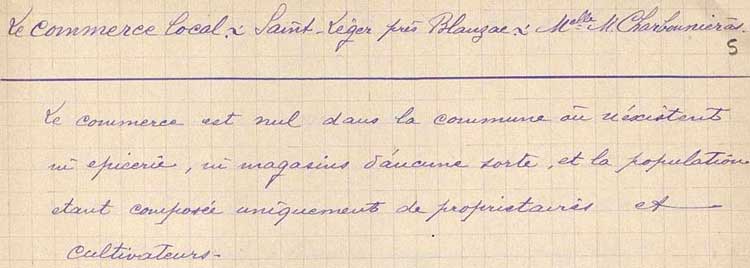 Le commerce local. ~ Saint-Léger près Blanzac ~ Melle M. Charbonnieras.
5
Le commerce est nul dans la commune où n'éxistent
ni epicerie, ni magasins d'aucune sorte, et la population
etant composée uniquement de propriétaires et
cultivateurs.